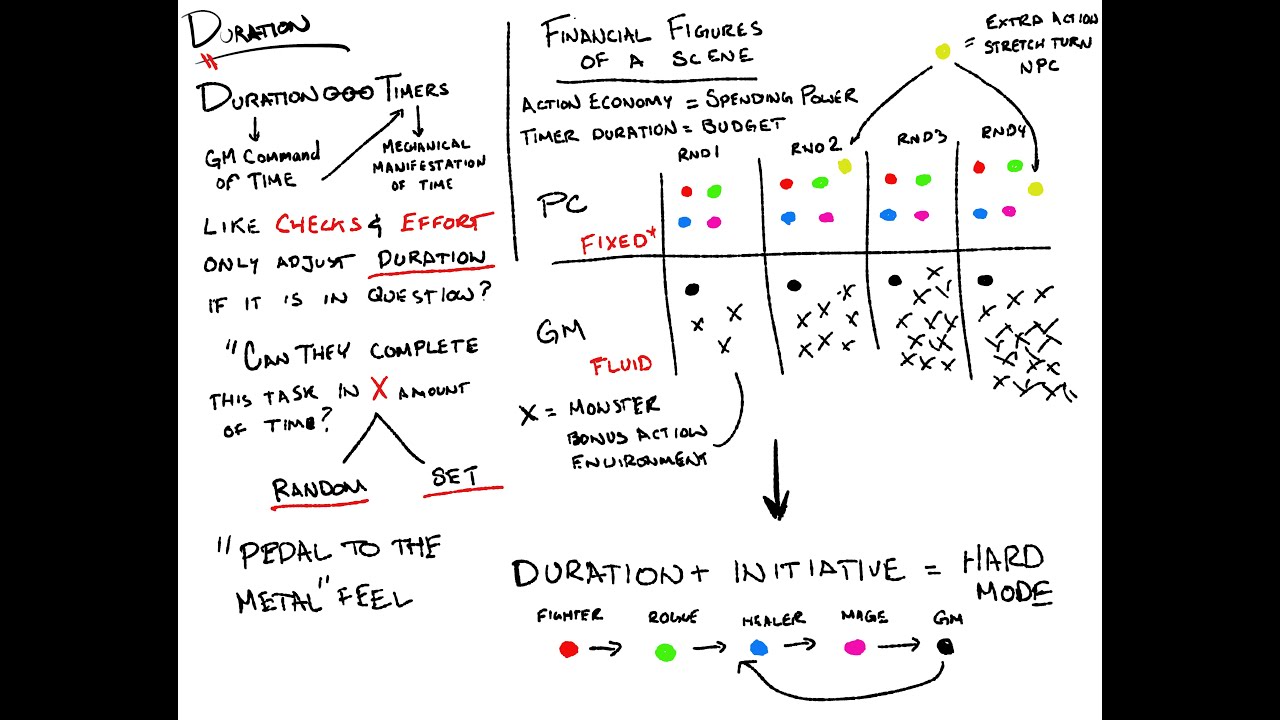 DURATION
DURATION TIMERS
GM COMMAND
OF TIME
MECHANICAL
MANIFESTATION
OF TIME
LIKE CHECKS & EFFORT
ONLY ADJUST DURATION
IF IT IS IN QUESTION?
"CAN THEY COMPLETE
THIS TASK IN X AMOUNT
OF TIME?
RANDOM SET
"PEDAL TO THE
METAL" FEEL
FINANCIAL FIGURES
OF A SCENE
ACTION ECONOMY = SPENDING POWER
TIMER DURATION = BUDGET
= EXTRA ACTION
STRETCH TURN
NPC
RND1 RND2 RND3 RND4
PC
FIXED*
GM
FLUID
X = MONSTER
BONUS ACTION
ENVIRONMENT
DURATION + INITIATIVE = HARD
MODE
FIGHTER ROGUE HEALER MAGE GM